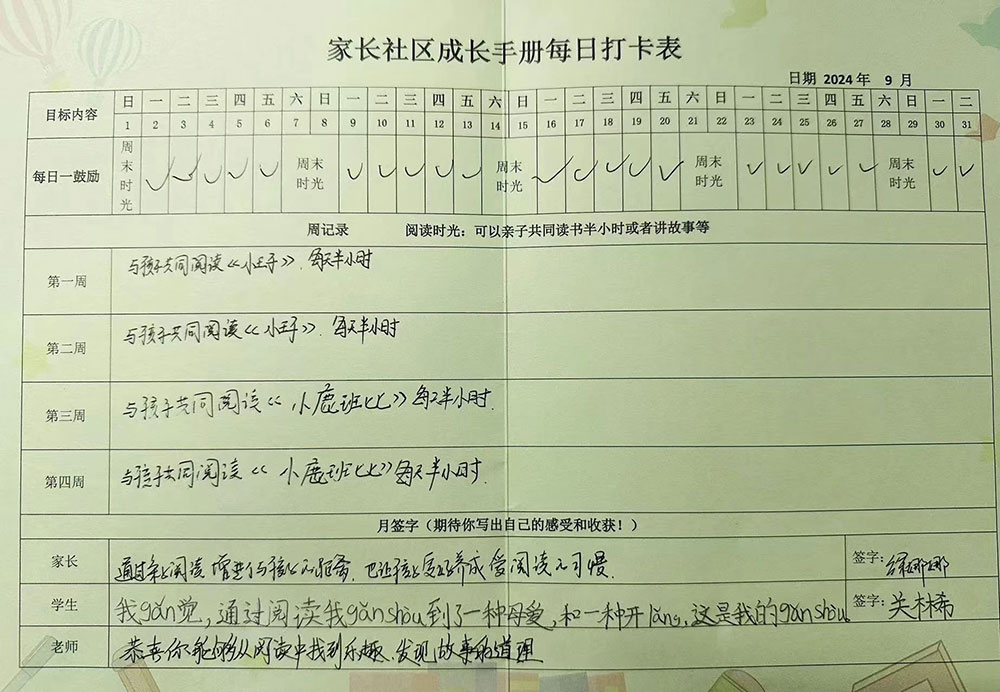 家长社区成长手册每日打卡表
日期 2024 年 9 月
目标内容 日 一 二 三 四 五 六 日 一 二 三 四 五 六 日 一 二 三 四 五 六 日 一 二 三 四 五 六 日 一 二
1 2 3 4 5 6 7 8 9 10 11 12 13 14 15 16 17 18 19 20 21 22 23 24 25 26 27 28 29 30 31
每日一鼓励 周末时光 ✓ ✓ ✓ ✓ ✓ 周末时光 ✓ ✓ ✓ ✓ ✓ 周末时光 ✓ ✓ ✓ ✓ ✓ 周末时光 ✓ ✓ ✓ ✓ ✓ 周末时光 ✓ ✓
周记录 阅读时光：可以亲子共同读书半小时或者讲故事等
第一周 与孩子共同阅读《小王子》. 每天半小时
第二周 与孩子共同阅读《小王子》. 每天半小时
第三周 与孩子共同阅读《小鹿班比》每天半小时.
第四周 与孩子共同阅读《小鹿班比》每天半小时.
月签字（期待你写出自己的感受和收获！）
家长 通过亲子阅读 增进了与孩子的距离. 也让孩子更好养成爱阅读的习惯. 签字:
学生 我gǎn觉，通过阅读我gǎnshòu到了一种母爱，和一种开lǎng，这是我的gǎnshòu 签字: 关林希
老师 恭喜你能够从阅读中找到乐趣. 发现故事的道理